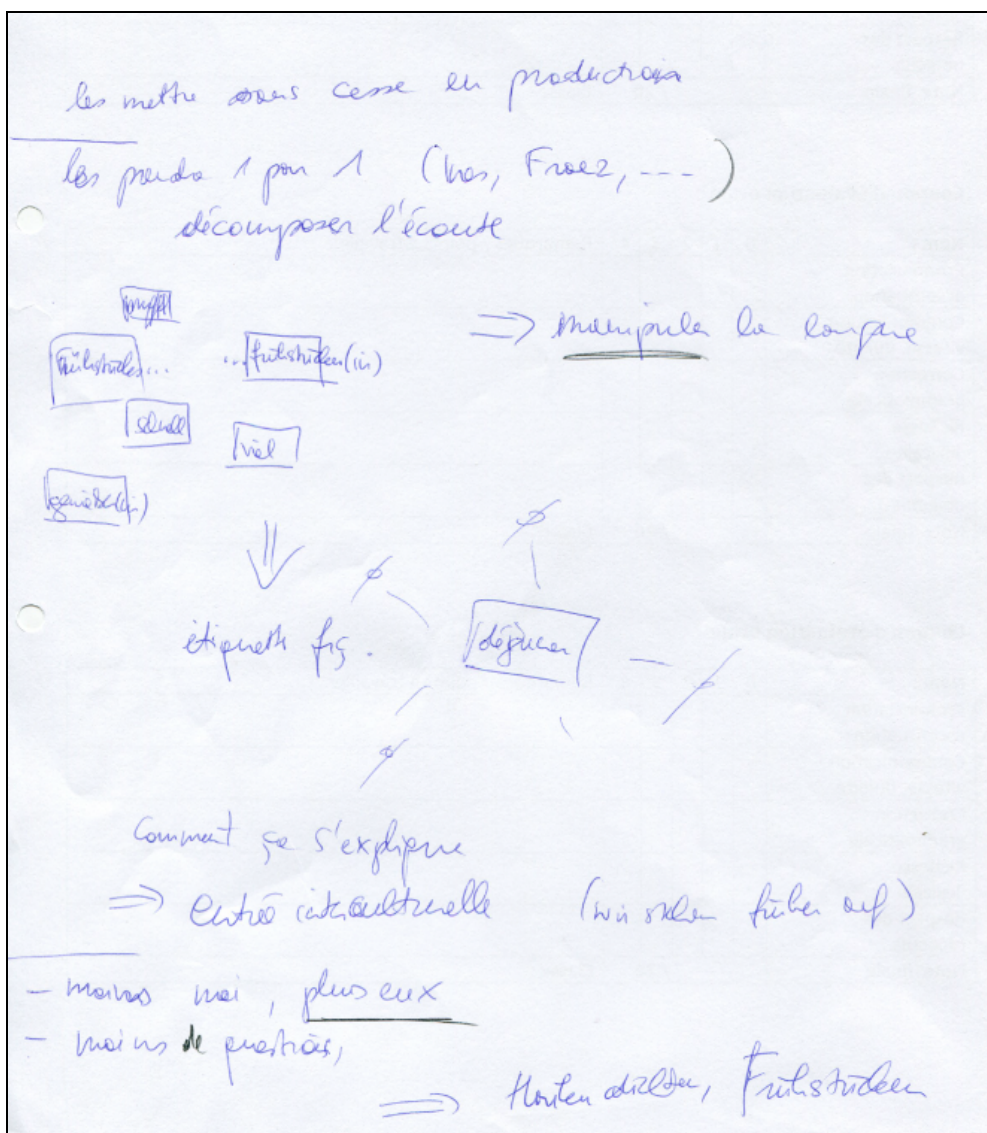 les mettre sans cesse en production
les prendre 1 par 1 (Ines, Franz, ---)
décomposer l'écoute
Frühstücken... ...frühstücken(in)
⇒ manipuler la langue
schnell
viel
étiquette frç. déjeuner
Comment ça s'explique
⇒ entrée interculturelle (wir stehen früher auf)
- moins moi, plus eux
- moins de questions,
⇒ Frühstücken